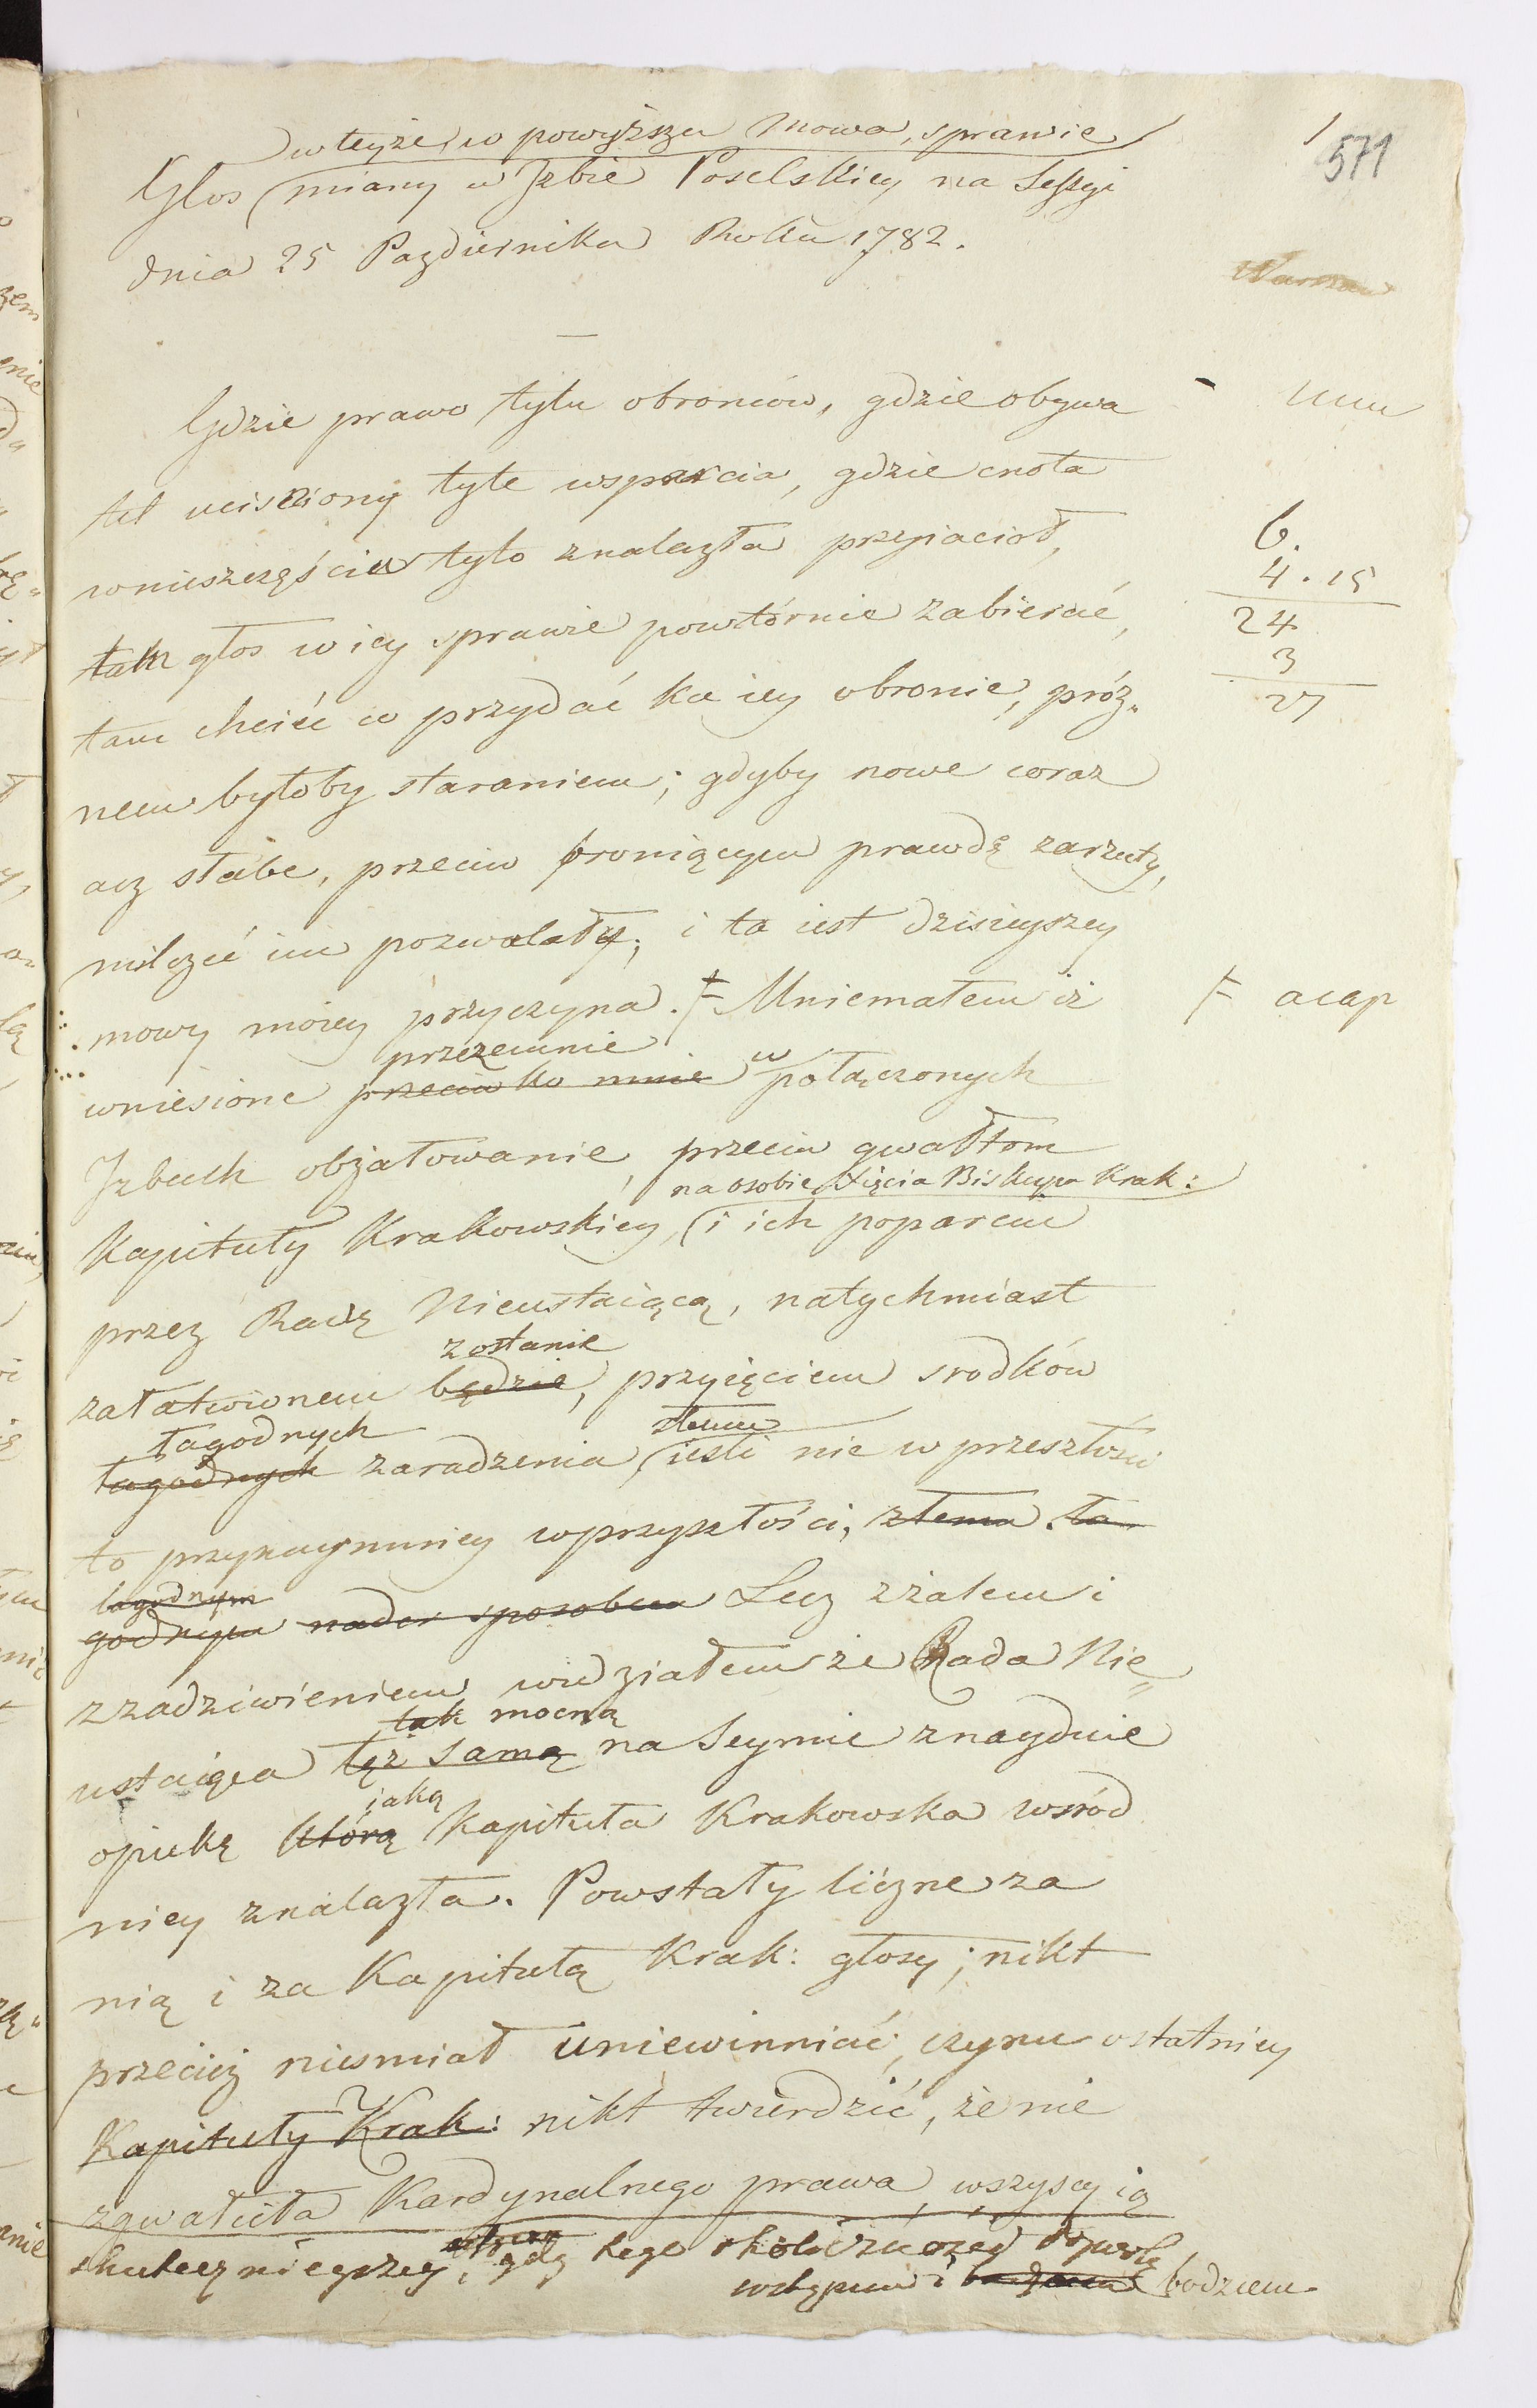 w teyże co powyższa mowa, sprawie
1
571
Głos miany w Izbie Poselskiey na Sessyi
dnia 25 Pazdziernika Roku 1782.
Gdzie prawo tylu obrońców, gdzie obywa
tel uciśniony tyle wsparcia, gdzie cnota
w nieszczęściu tylo znalazła przyiaciół,
tam głos w iey sprawie powtórnie zabierać,
6.
4 . 15
24
3
27
tam chcieć co przydać ku iey obronie, próż„
nem byłoby staraniem; gdyby nowe coraz
acz słabe, przeciw broniącym prawdę zarzuty,
milczeć im pozwalały; i ta iest dzisieyszey
mowy moiey przyczyna. Mniemałem iż
acap
przezemnie
wniesione przeciwko mnie w połączonych
Izbach obżałowanie, przeciw gwałtom
na osobie Xięcia Biskupa Krak:
Kapituły Krakowskiey, i ich poparciu
przez Radę Nieustaiącą, natychmiast
zostanie
załatwionem będzie, przyięciem srodków
łagodnych
złemu
łagodnych zaradzenia iesli nie w przeszłości
to przynaymniey w przyszłości, złemu ła
łagodnym
godnym nader sposobem Lecz z żalem i
z zadziwieniem widziałem że Rada Nie
tak mocną
ustaiąca tęż samą na Seymie znayduie
iaką
opiekę którą Kapituła Krakowska wśród
niey znalazła. Powstały liczne za
nią i za Kapitułą Krak: głosy; nikt
przecież nieśmiał uniewinniać, czynu ostatniey
Kapituły Krak: nikt twierdzić, że nie
zgwałciła Kardynalnego prawa, wszyscy ią
skuteczniejszey, gdy tego
wstępem i bodzcem